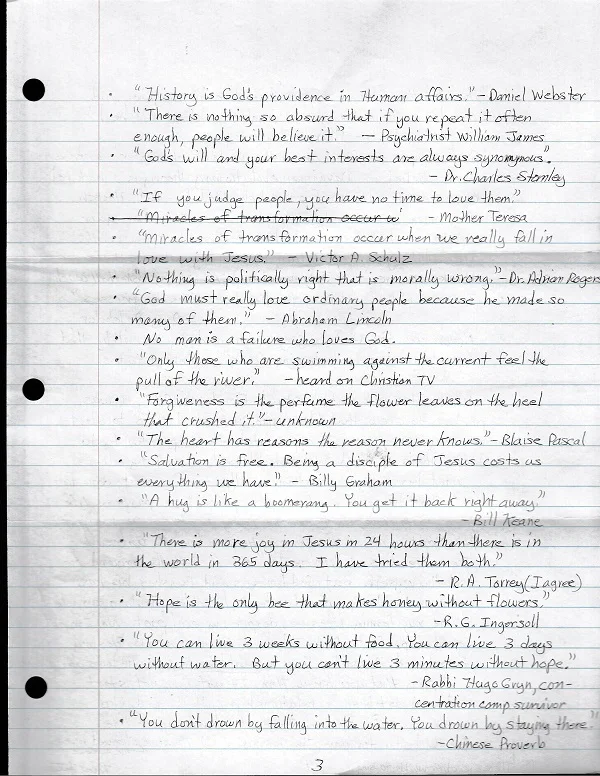 • "History is God's providence in Human affairs." - Daniel Webster
• "There is nothing so absurd that if you repeat it often
enough, people will believe it." — Psychiatrist William James
• "God's will and your best interests are always synonymous".
- Dr. Charles Stanley
• "If you judge people, you have no time to love them."
"Miracles of transformation occur w' - Mother Teresa
• "Miracles of transformation occur when we really fall in
love with Jesus." - Victor A. Schulz
• "Nothing is politically right that is morally wrong." - Dr. Adrian Rogers
• "God must really love ordinary people because he made so
many of them." - Abraham Lincoln
• No man is a failure who loves God.
• "Only those who are swimming against the current feel the
pull of the river." - heard on Christian TV
• "Forgiveness is the perfume the flower leaves on the heel
that crushed it." - unknown
• "The heart has reasons the reason never knows." - Blaise Pascal
• "Salvation is free. Being a disciple of Jesus costs us
everything we have." - Billy Graham
• "A hug is like a boomerang. You get it back right away."
- Bill Keane
• "There is more joy in Jesus in 24 hours than there is in
the world in 365 days. I have tried them both."
- R.A. Torrey (I agree)
• "Hope is the only bee that makes honey without flowers."
- R.G. Ingersoll
• "You can live 3 weeks without food. You can live 3 days
without water. But you can't live 3 minutes without hope."
- Rabbi Hugo Gryn, con-
centration camp survivor
• "You don't drown by falling into the water. You drown by staying there."
- Chinese Proverb
3